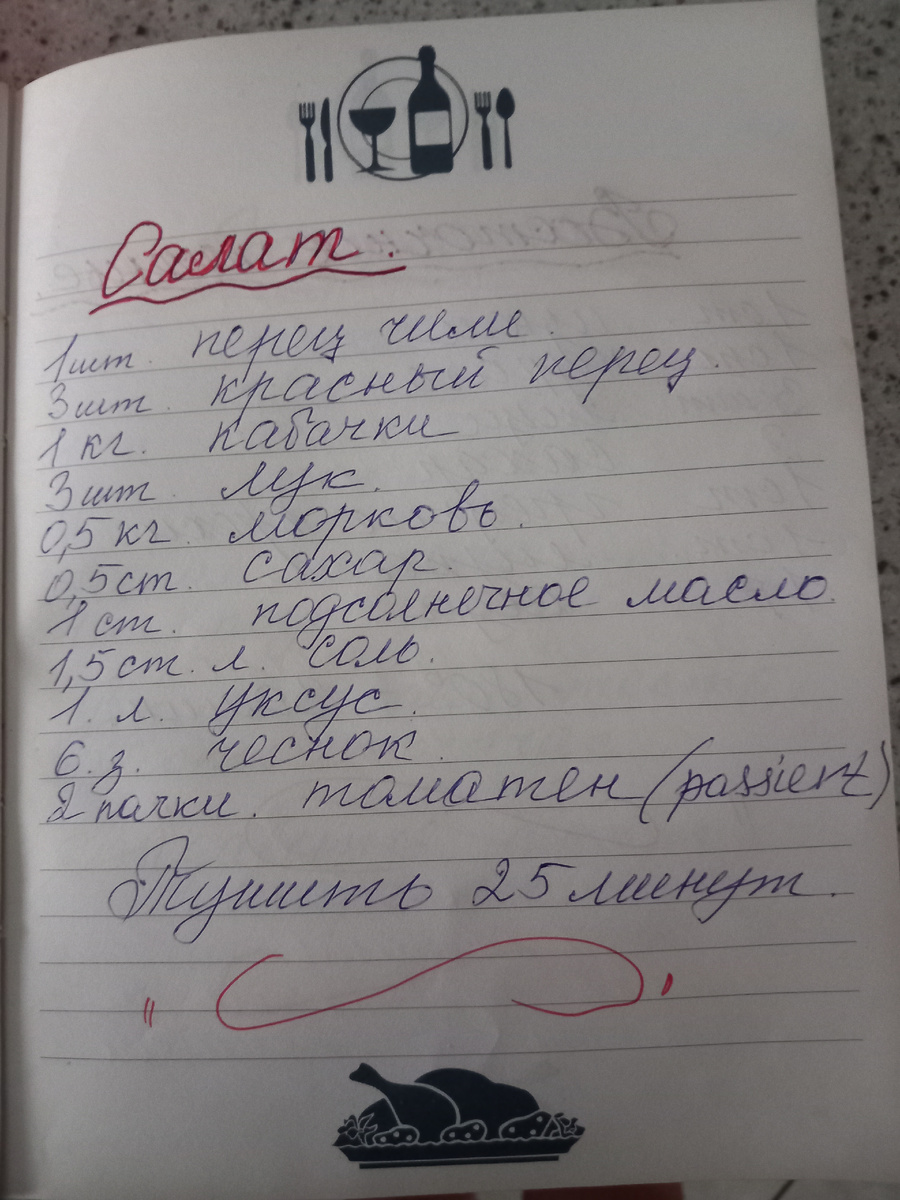 Салат.
1 шт. перец чили.
3 шт. красный перец.
1 кг. кабачки
3 шт. лук.
0,5 кг. морковь.
0,5 ст. сахар.
1 ст. подсолнечное масло.
1,5 ст. л. соль.
1. л. уксус.
6. з. чеснок.
2 пачки. томатен (passiert)
Тушить 25 минут.